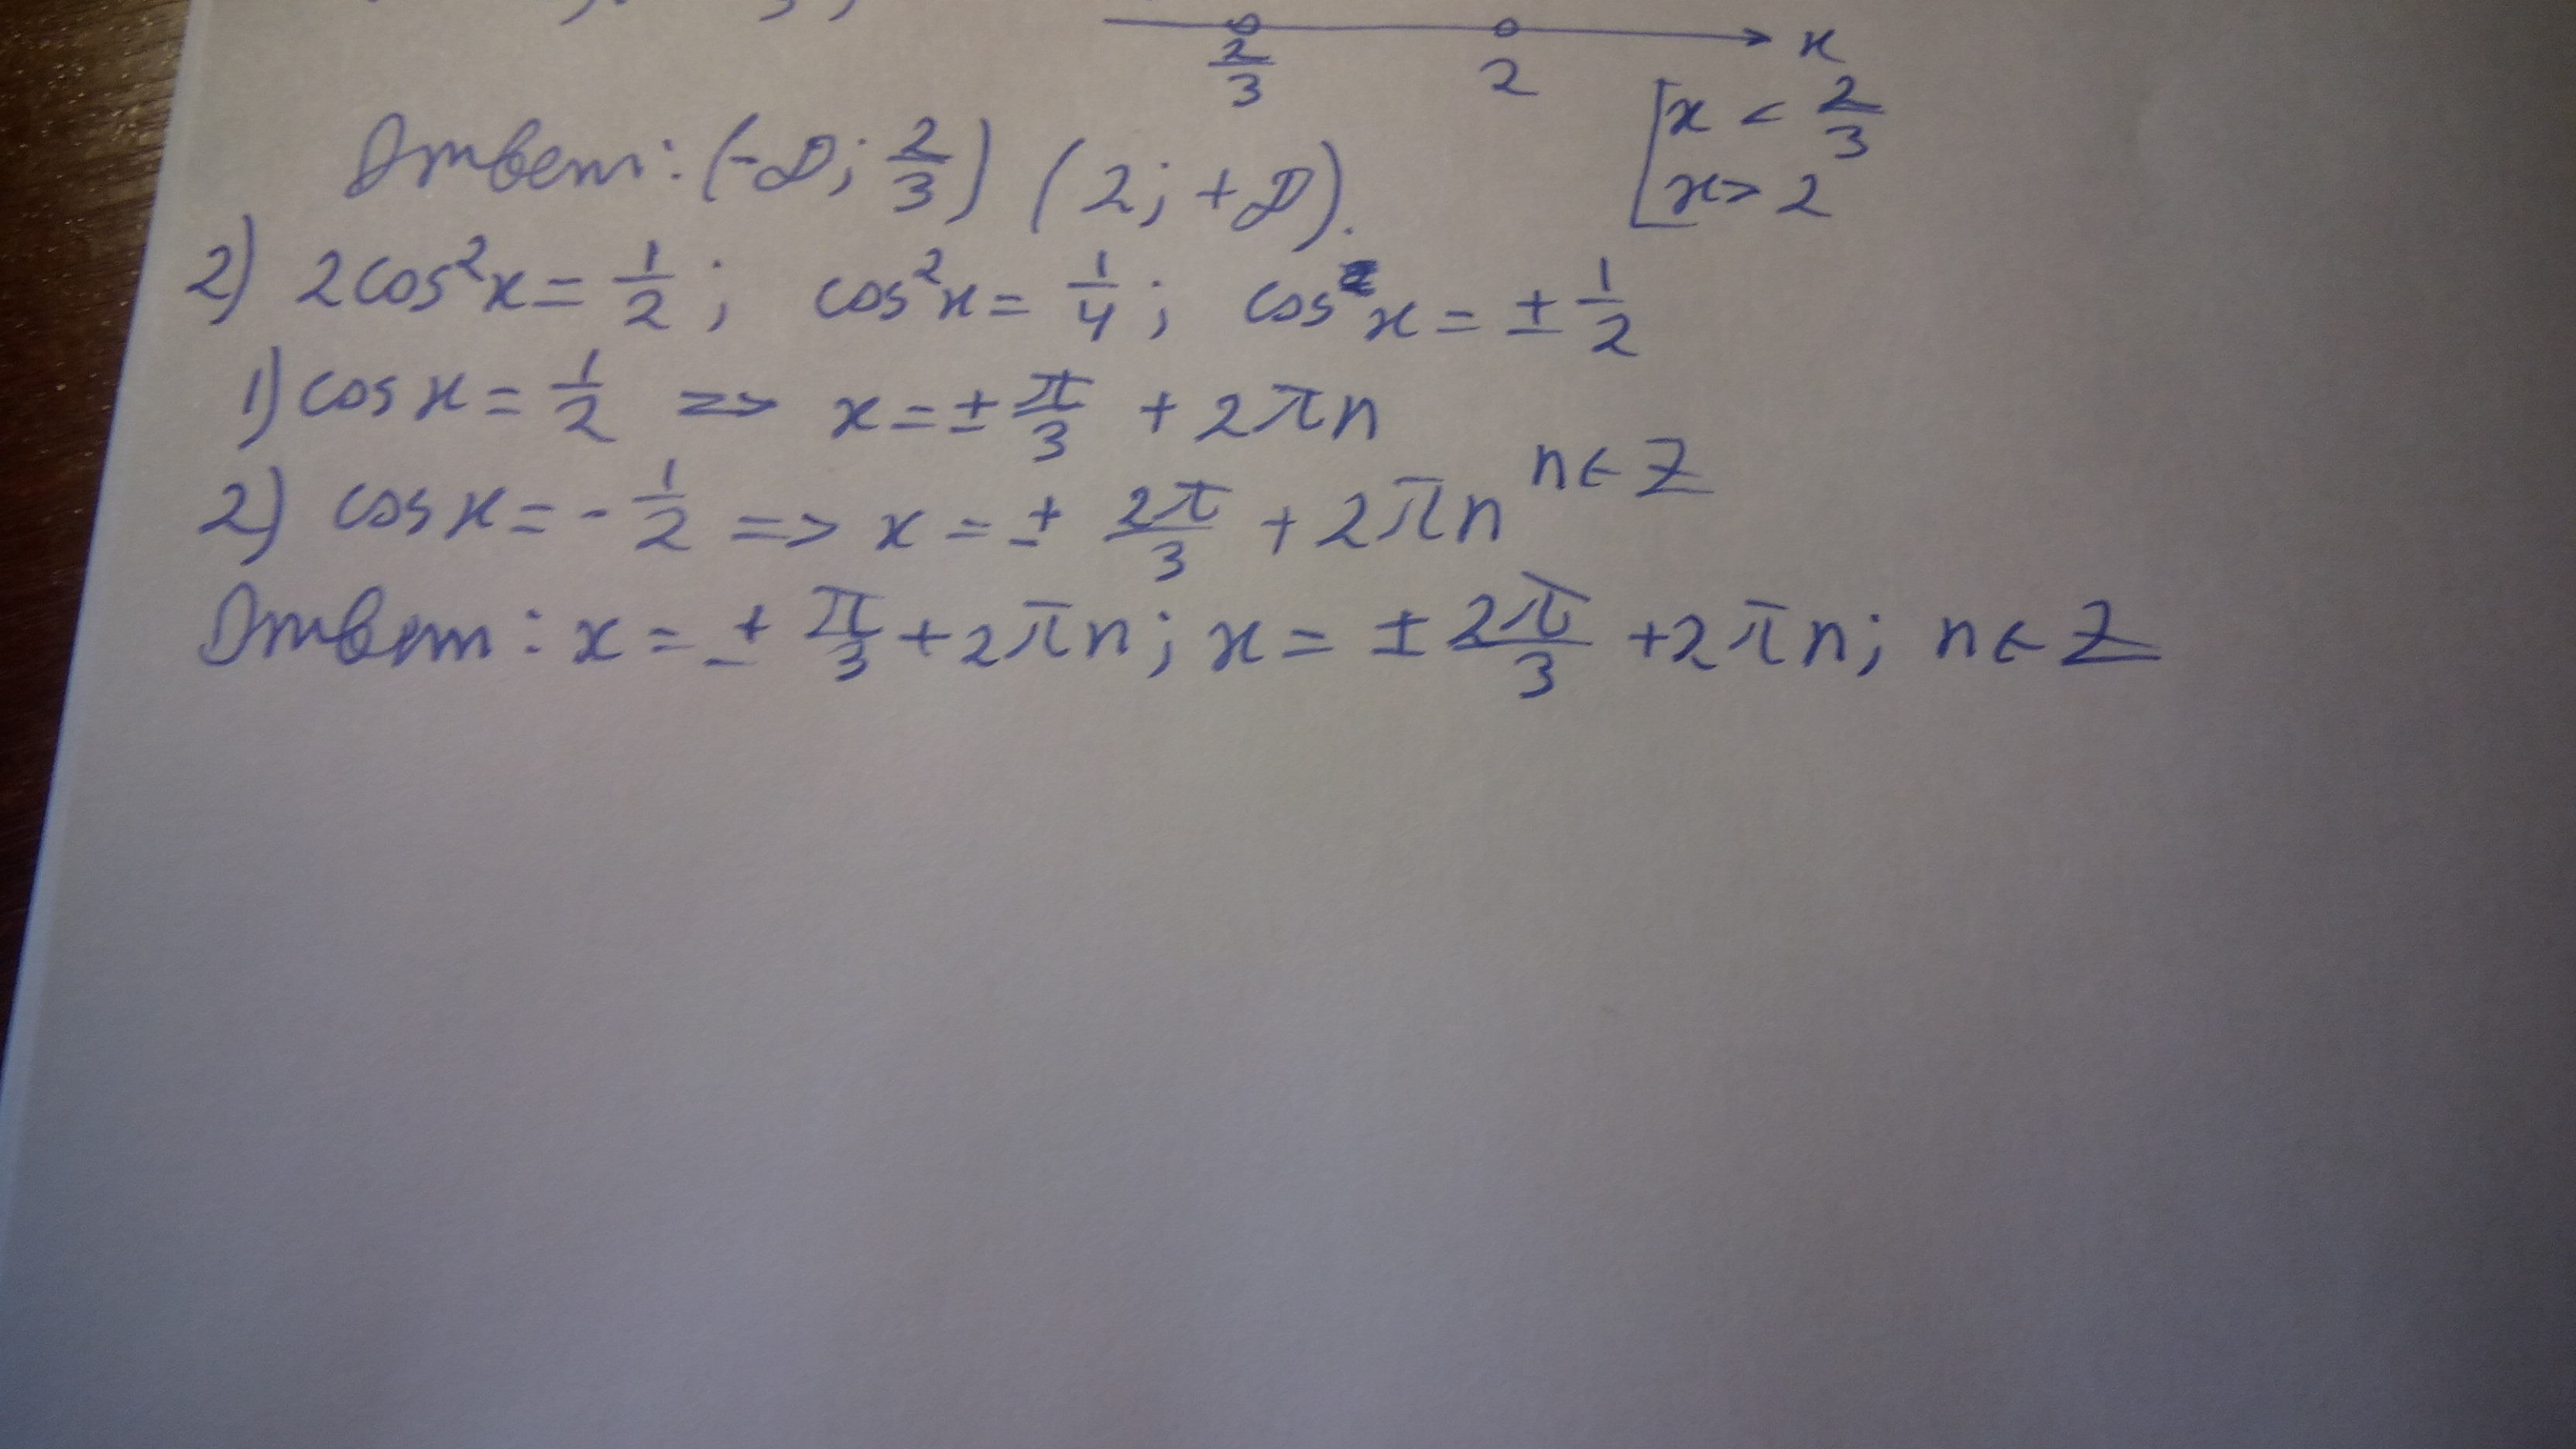 x
2/3 2
[x < 2/3
x > 2
Ответ: (-∞; 2/3) (2; +∞).
2) 2cos²x = 1/2; cos²x = 1/4; cos x = ± 1/2
1) cos x = 1/2 => x = ± π/3 + 2πn
n ∈ Z
2) cos x = - 1/2 => x = ± 2π/3 + 2πn
Ответ: x = ± π/3 + 2πn; x = ± 2π/3 + 2πn; n ∈ Z